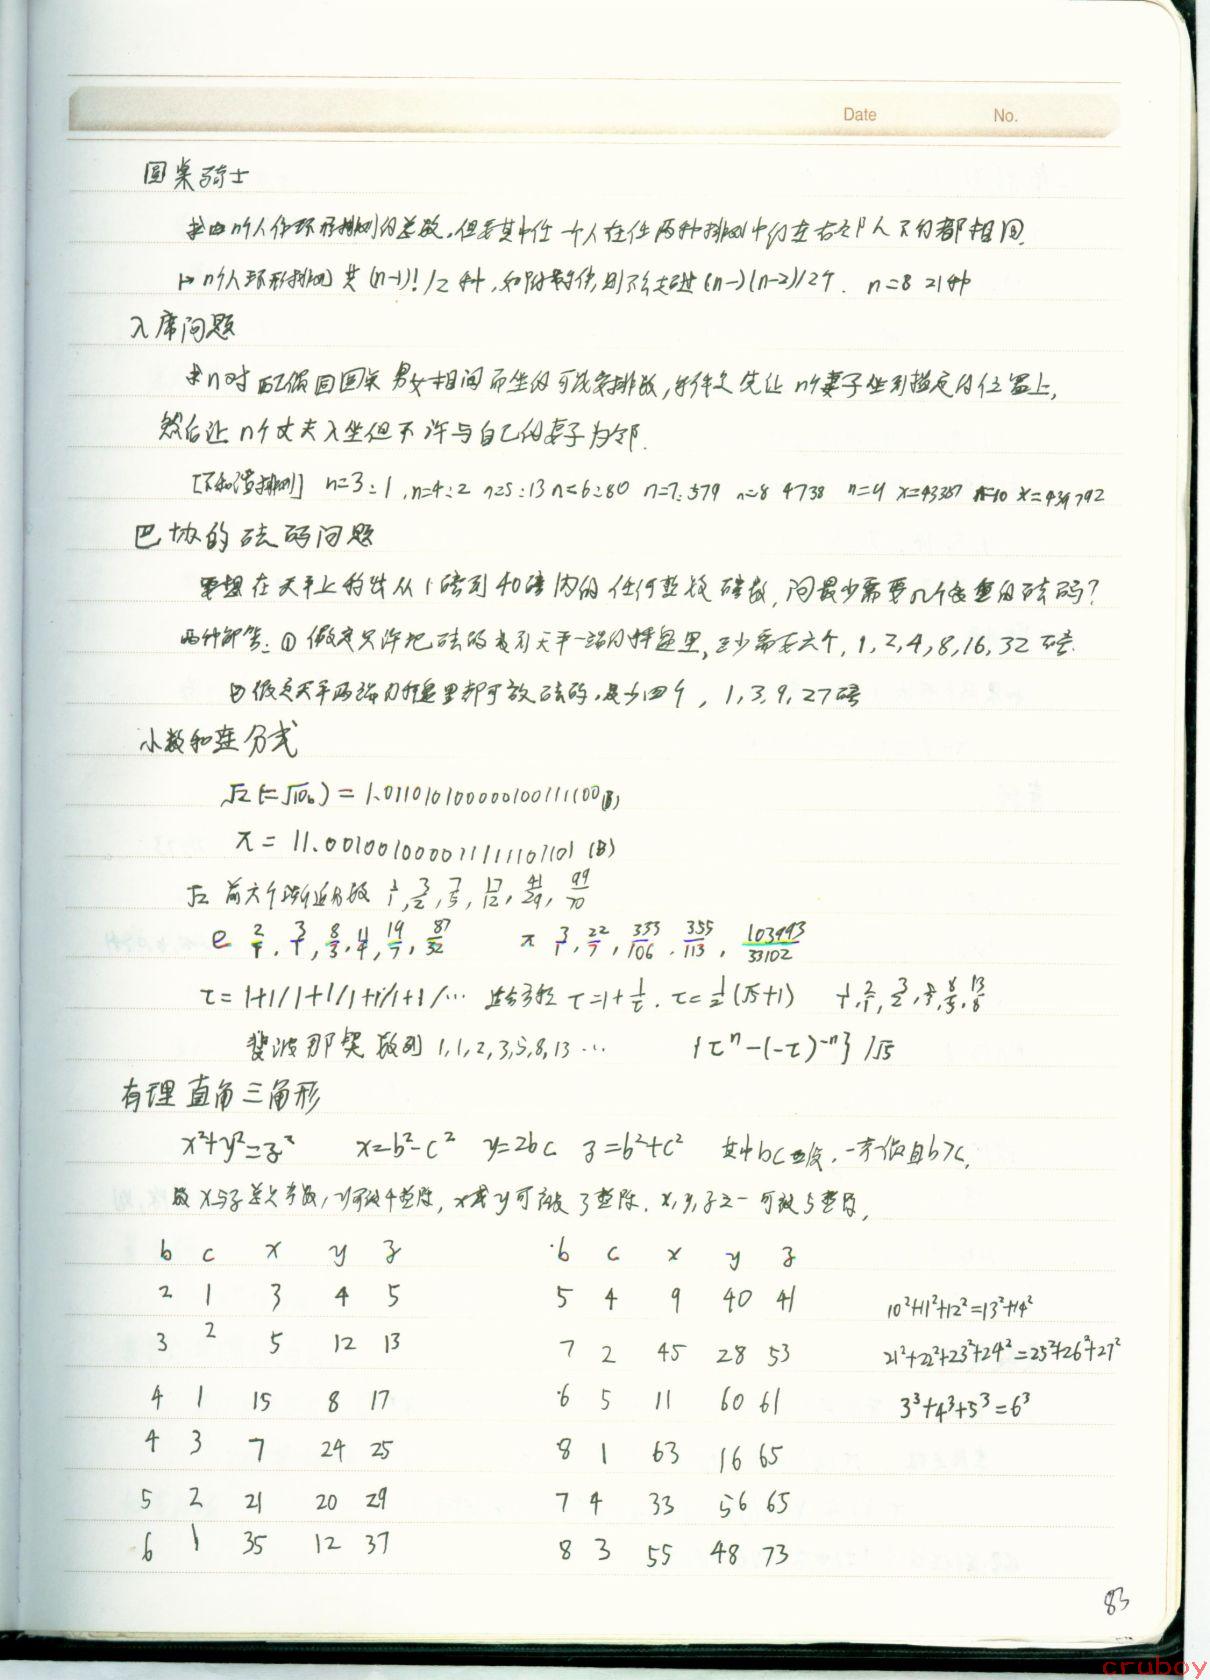 Date No.
圆桌骑士
求由n个人作环形排列的总数,但要其中任一个人在任两种排列中的左右邻人不的都相同.
n个人环形排列共(n-1)!/2种,如附条件,则不会超过(n-1)(n-2)/2个. n=8 21种
入席问题
求n对配偶围圆桌男女相间而坐的可能安排数,条件是先让n个妻子坐到指定的位置上,
然后让n个丈夫入坐但不许与自己的妻子为邻.
[不和谐排列] n=3:1,n=4:2 n=5:13 n=6:80 n=7:579 n=8 4738 n=9 x=43387 n=10 x=439792
巴协的砝码问题
要想在天平上称出从1磅到40磅内的任何整数磅数,问最少需要几个重的砝码?
两种解答:① 假定只许把砝码放到天平一端的秤盘里,至少需要六个,1,2,4,8,16,32磅.
②假定天平两端的秤盘里都可放砝码,是少四个,1,3,9,27磅
小数和连分式
√2(=√10b)=1.0110101000001001111100(B)
π= 11.0010010000111111101101 (B)
√2 前六个渐近分数 1/1,3/2,7/5,17/12,41/29,99/70
e 2/1,3/1,8/3,11/4,19/7,87/32 π 3/1,22/7,333/106,355/113,103993/33102
τ=1+1/1+1/1+1/1+1/… τ=1+1/τ. τ=1/2(√5+1) 1/1,2/1,3/2,5/3,8/5,13/8
斐波那契数列 1,1,2,3,5,8,13 … {τⁿ-(-τ)⁻ⁿ}/√5
有理直角三角形
x²+y²=z² x=b²-c² y=2bc z=b²+c² 其中bc互质,一奇一偶且b>c.
故x与z总是奇数,y可被4整除,x或y可被3整除.x,y,z之一可被5整除,
b c x y z b c x y z
2 1 3 4 5 5 4 9 40 41 10²+11²+12²=13²+14²
3 2 5 12 13 7 2 45 28 53 21²+22²+23²+24²=25²+26²+27²
4 1 15 8 17 6 5 11 60 61 3³+4³+5³=6³
4 3 7 24 25 8 1 63 16 65
5 2 21 20 29 7 4 33 56 65
6 1 35 12 37 8 3 55 48 73
83
cruboy